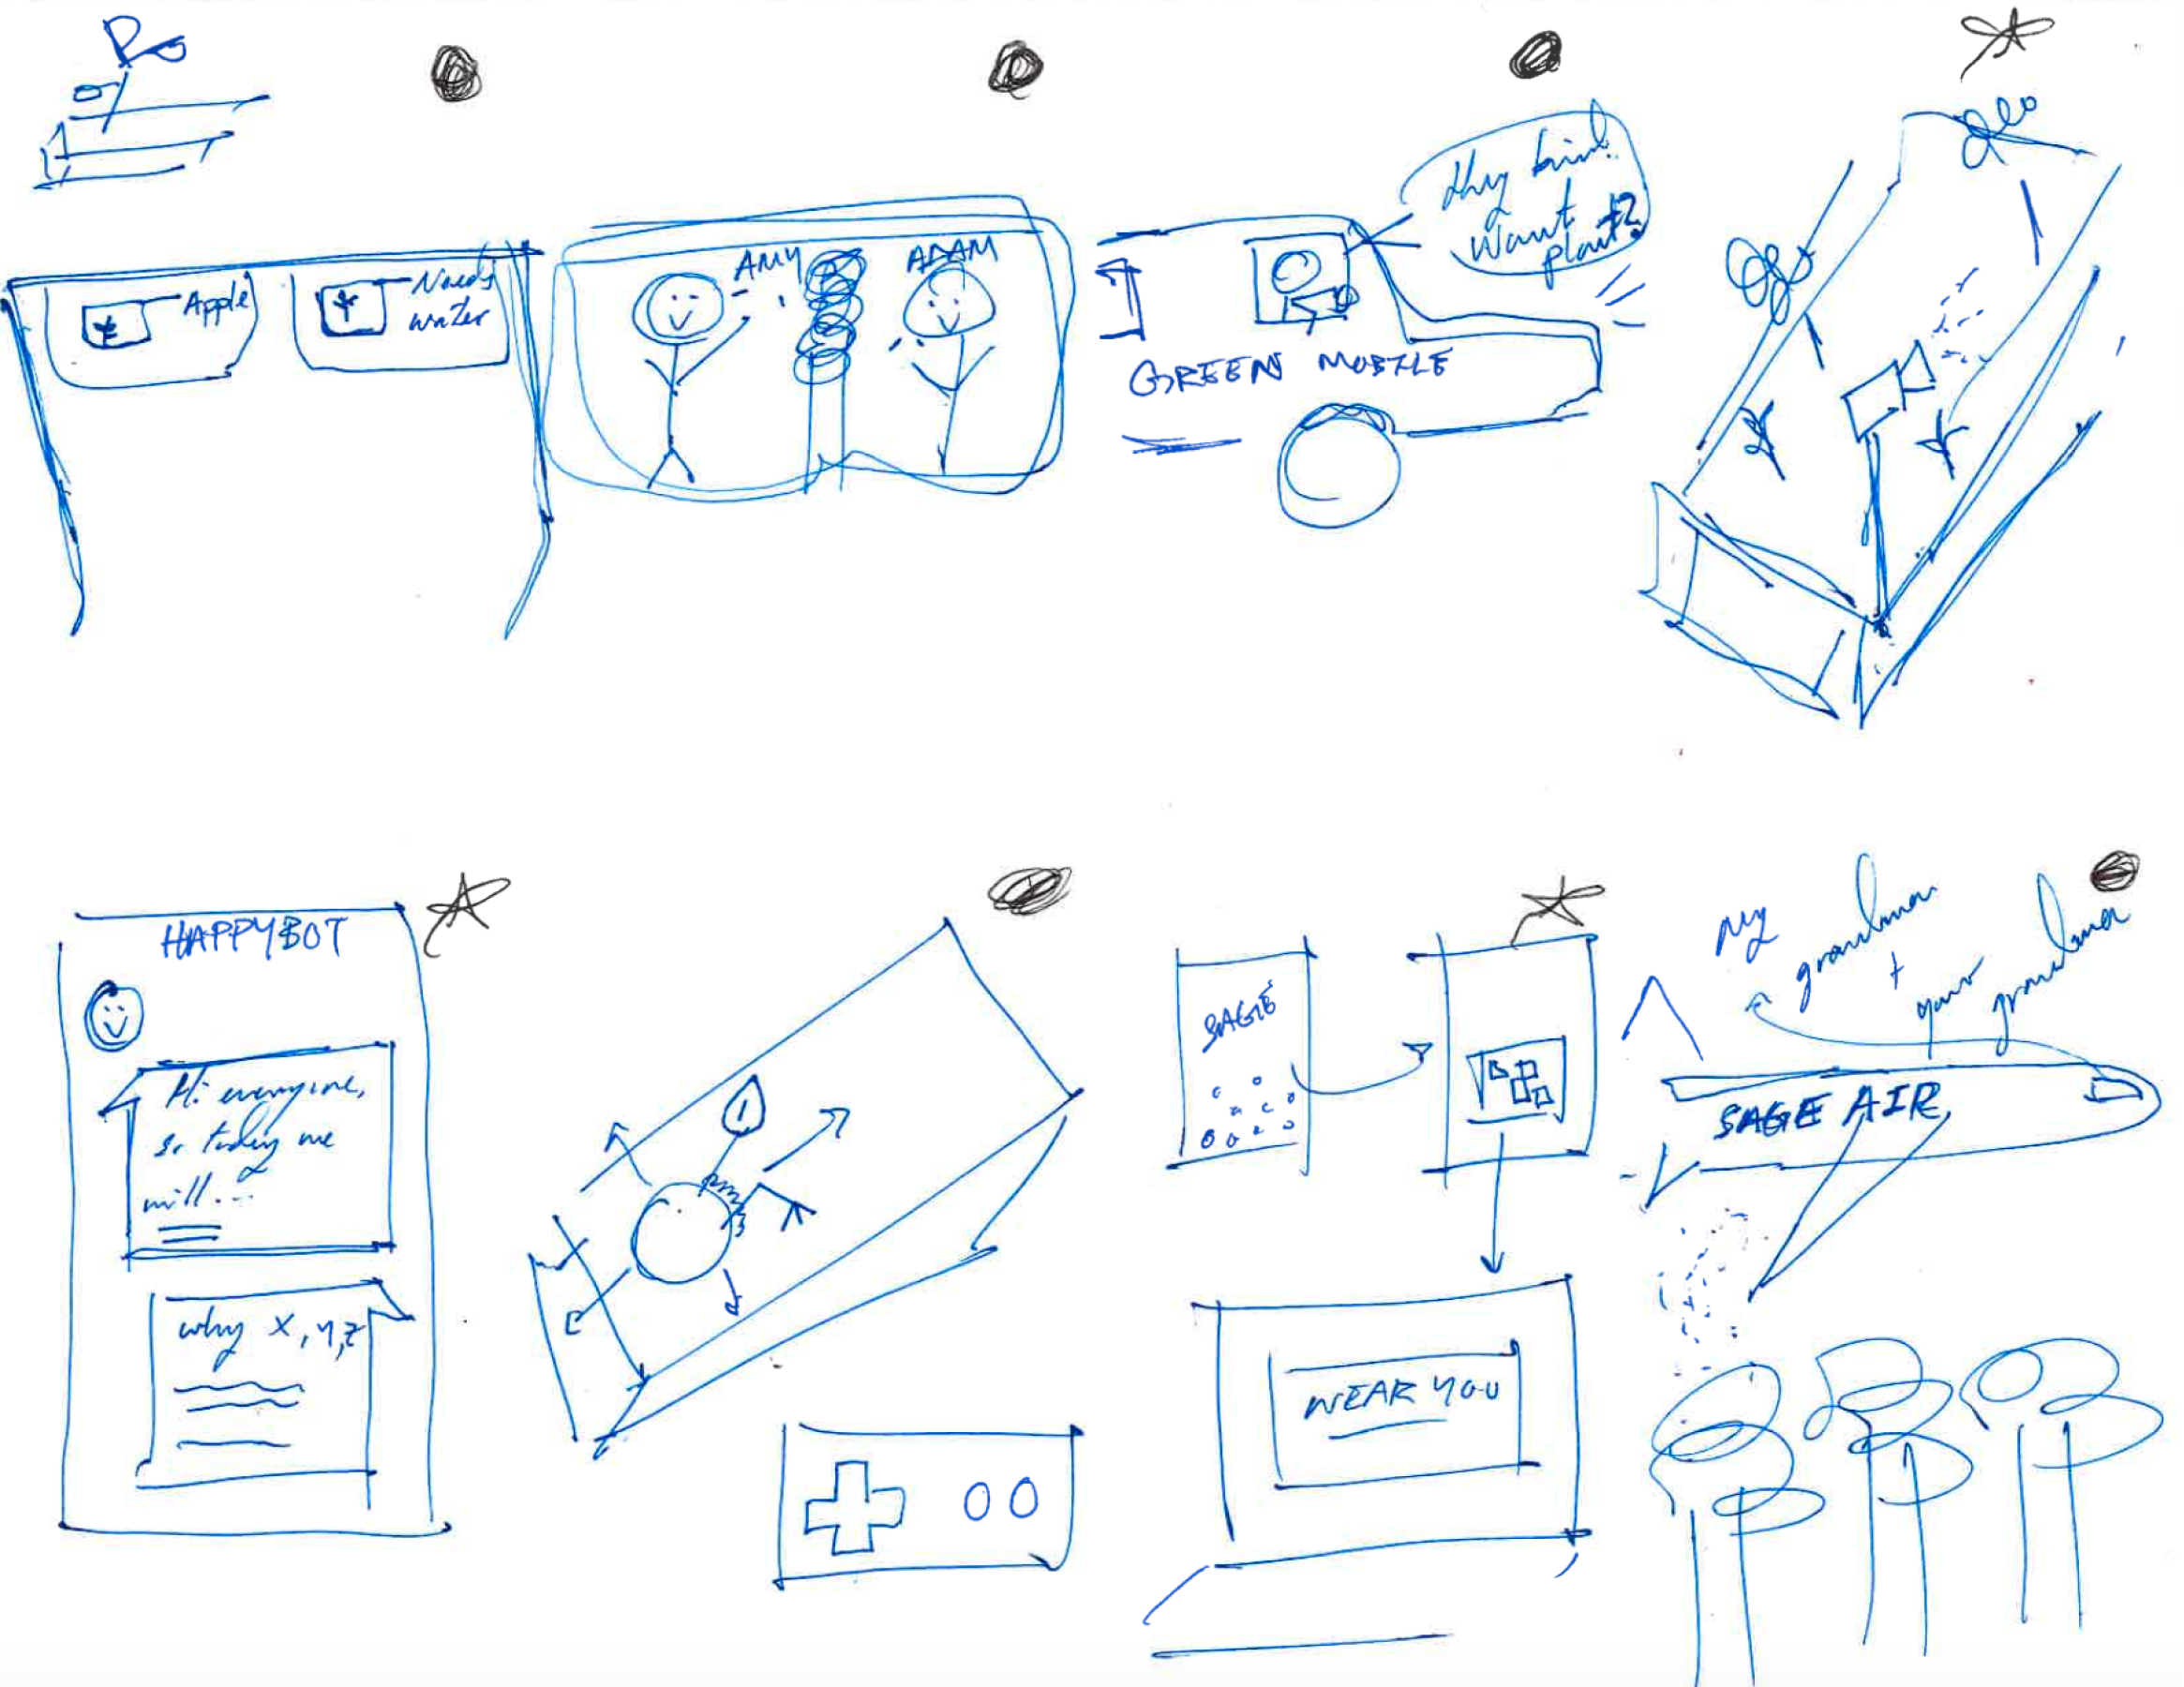 Apple
Needs
water
AMY
ADAM
Hey kid!
Want
plant?
GREEN MOBILE
HAPPYBOT
Hi everyone,
so today we
will...
why x, y, z
SAGE
NEAR YOU
my
grandma
+
your
grandma
SAGE AIR